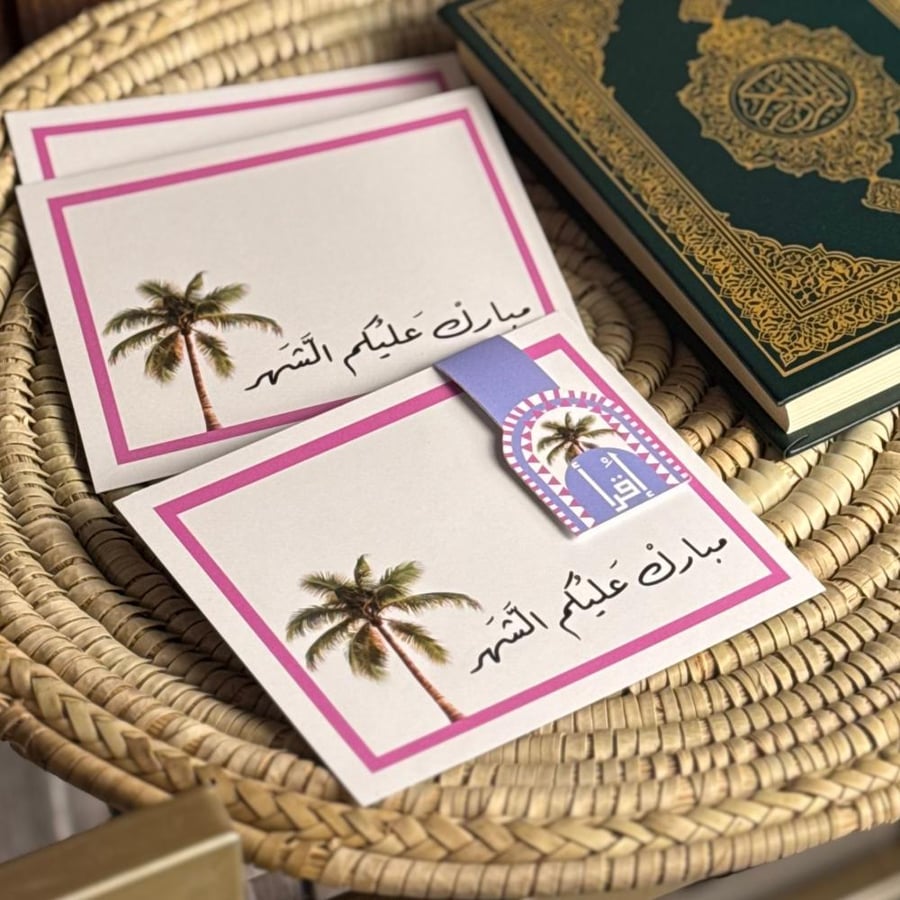 مباركْ عَليُكم الَّشَهر
إقرأ
مباركْ عَليُكم الَّشَهر